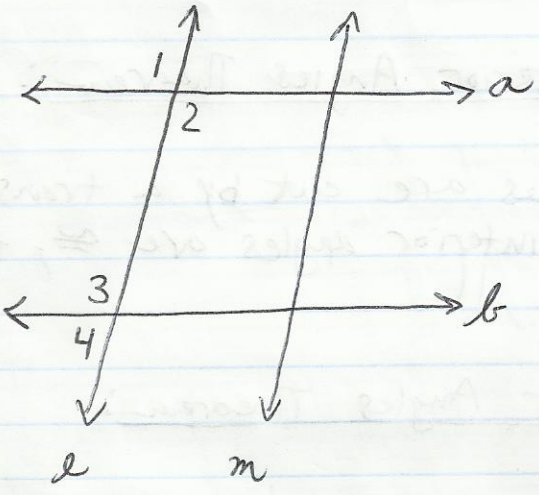 1
a
2
3
b
4
l
m